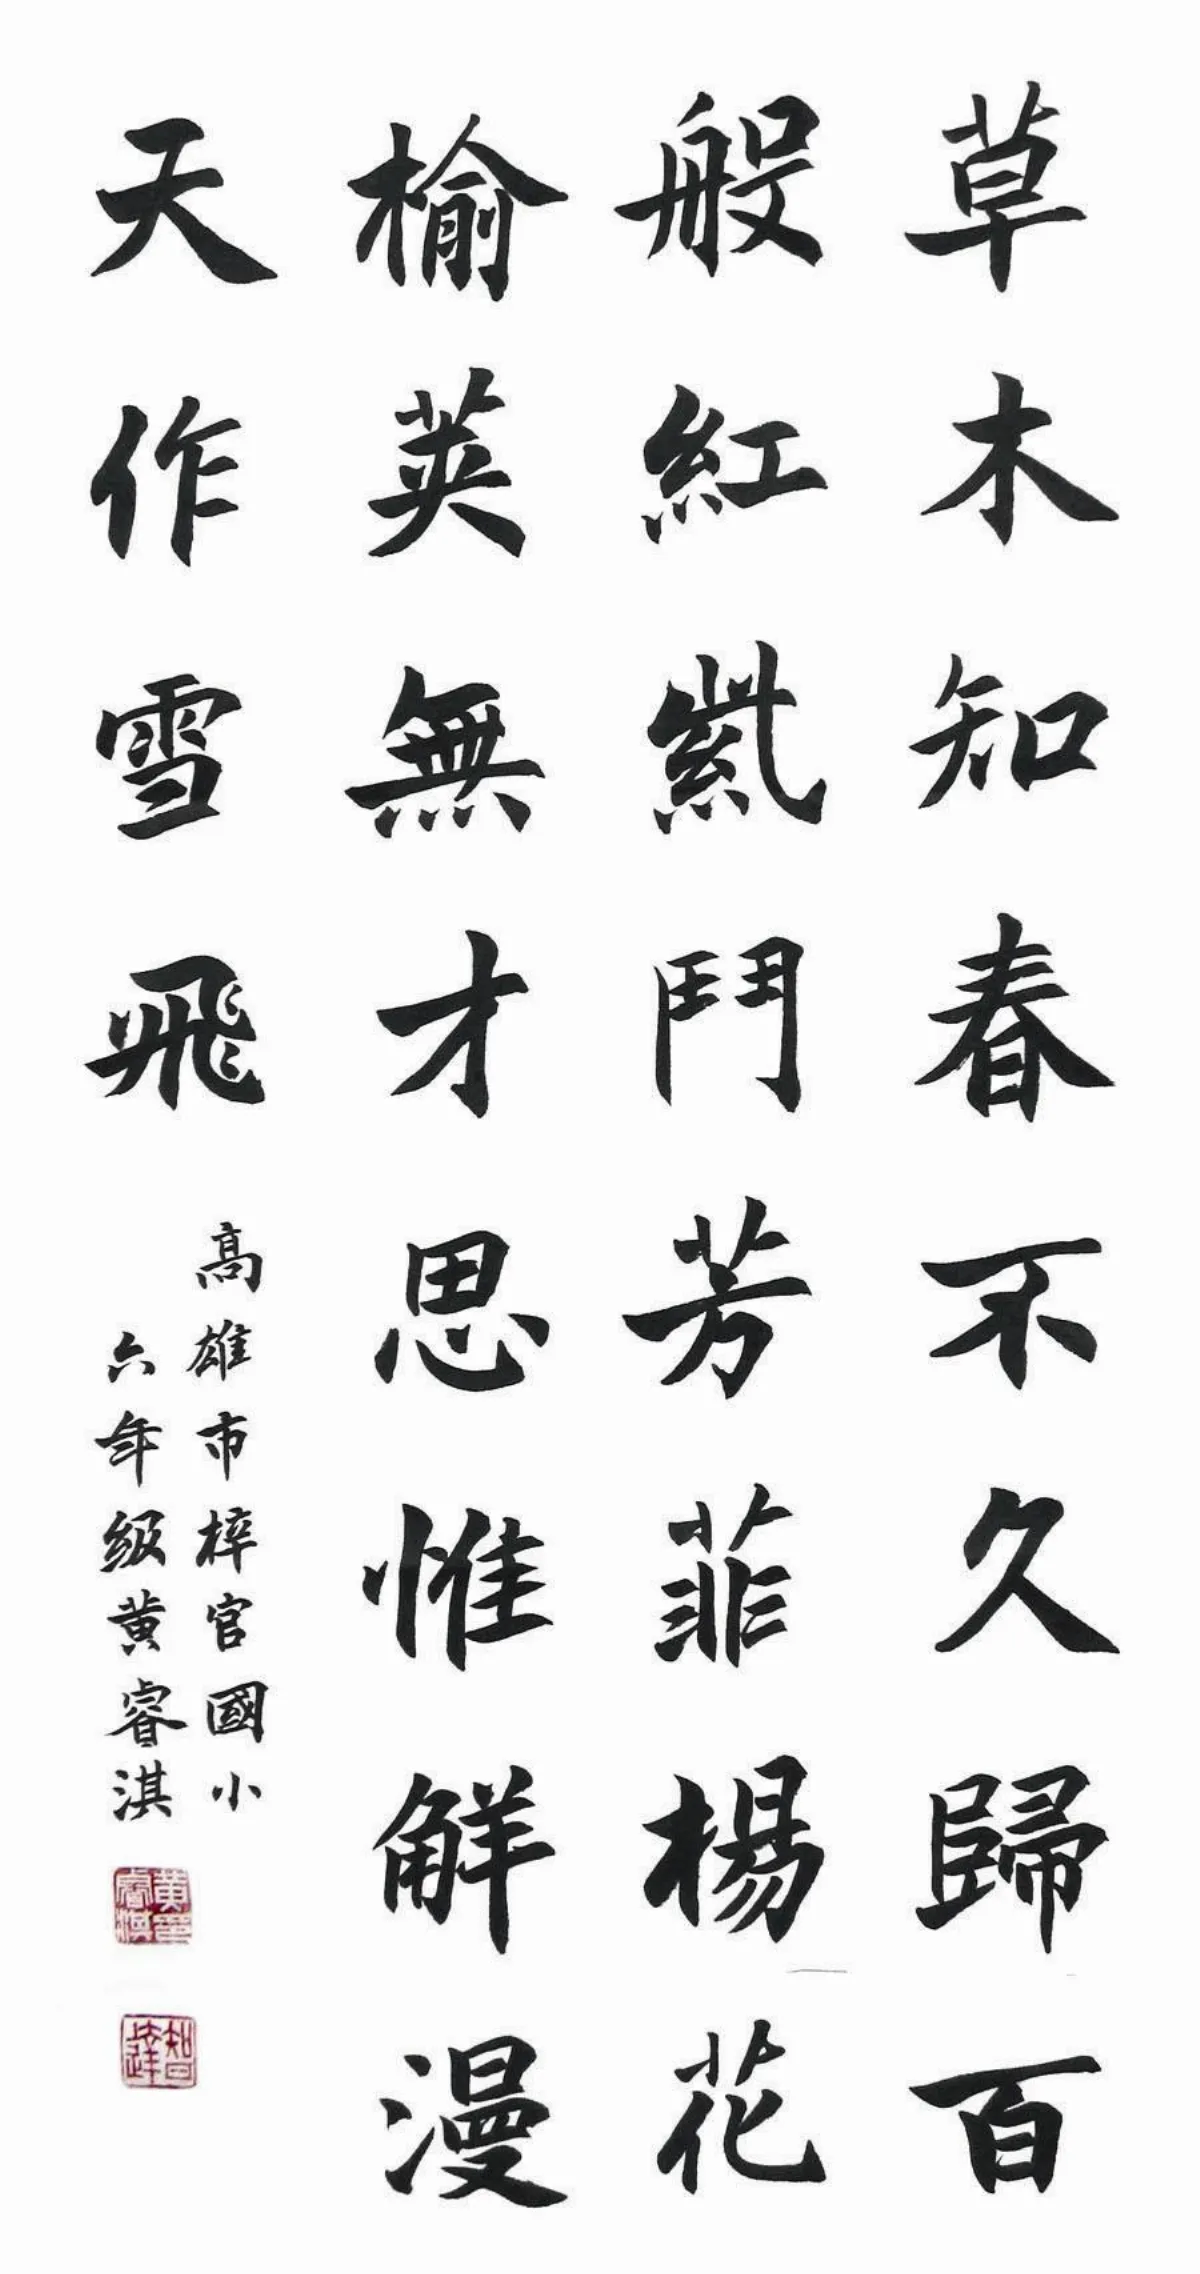 草木知春不久歸百
般紅紫鬥芳菲楊花
榆莢無才思惟解漫
天作雪飛
高雄市梓官國小
六年級黃睿淇